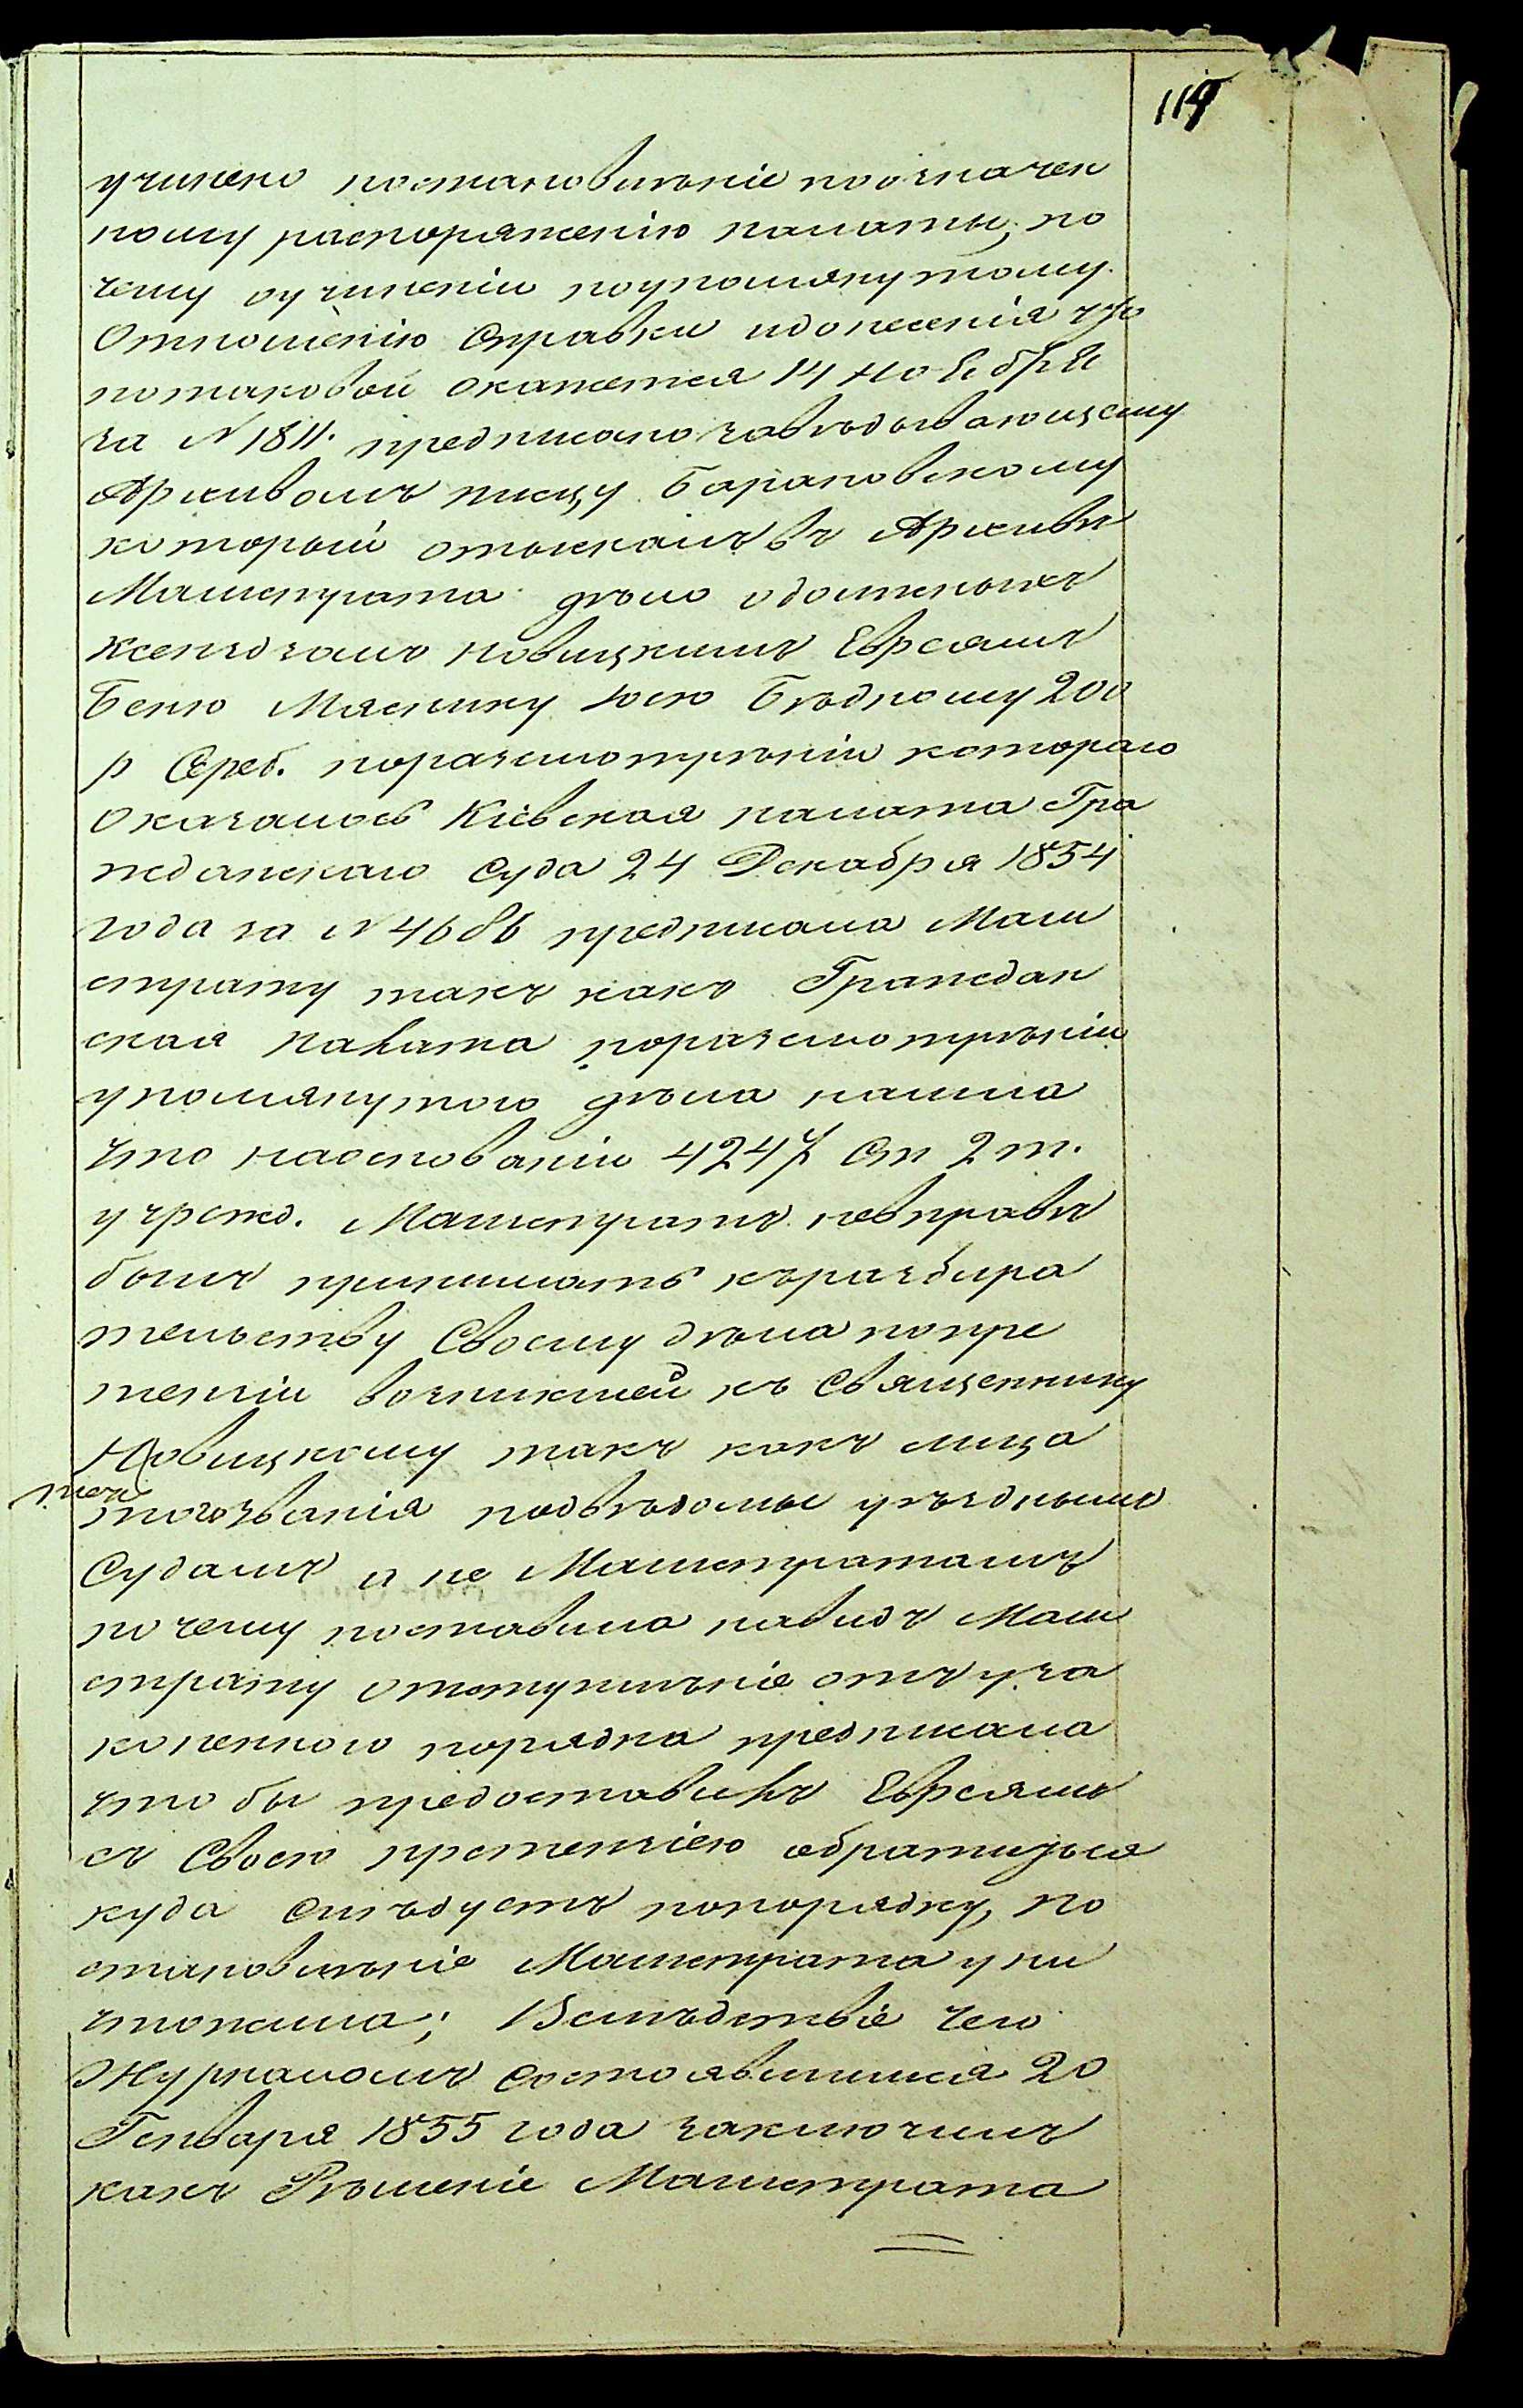 119
учинено постановленіе по означен
ному распоряженію палаты, по
чему оучиненіи поупомянутому
Отношенію Справки идонесенія что
потаковой окажется 14 Ноября
за N 1811. предписано завѣдывающему
Архивомъ писцу Барановскому
который отыскалъ въ Архивѣ
Магистрата дѣло одолженныхъ
Ксендзамъ Новицкимъ Евреямъ
Беню Мяснику Юсю Бѣдному 200
р Сереб. поразсмотрѣніи котораго
Оказалось Кіевская палата Гра
жданскаго Суда 24 Декабря 1854
года за N 4686 предписала Маги
страту такъ какъ Граждан
ская палата поразсмотрѣніи
упомянутого дѣла нашла
что наоснованіи 4247 Ст 2 т.
учрежд. Магистратъ невправѣ
былъ принимать къразбира
тельству Своему дѣла попре
тензіи возникшей къ Священнику
Новицкому такъ какъ лица
того званія подвѣдомы уѣзднымъ
Судамъ а не Магистратамъ
по чему поставила навидъ Маги
страту отступленіе отъ уза
коненного порядка предписала
что бы предоставилъ Евреямъ
съ Своею претензіею обратиться
куда Слѣдуетъ попорядку, по
становленіе Магистрата уни
чтожила; Вслѣдствіе чего
Журналомъ Состоявшимся 20
Генваря 1855 года заключилъ
какъ Рѣшеніе Магистрата